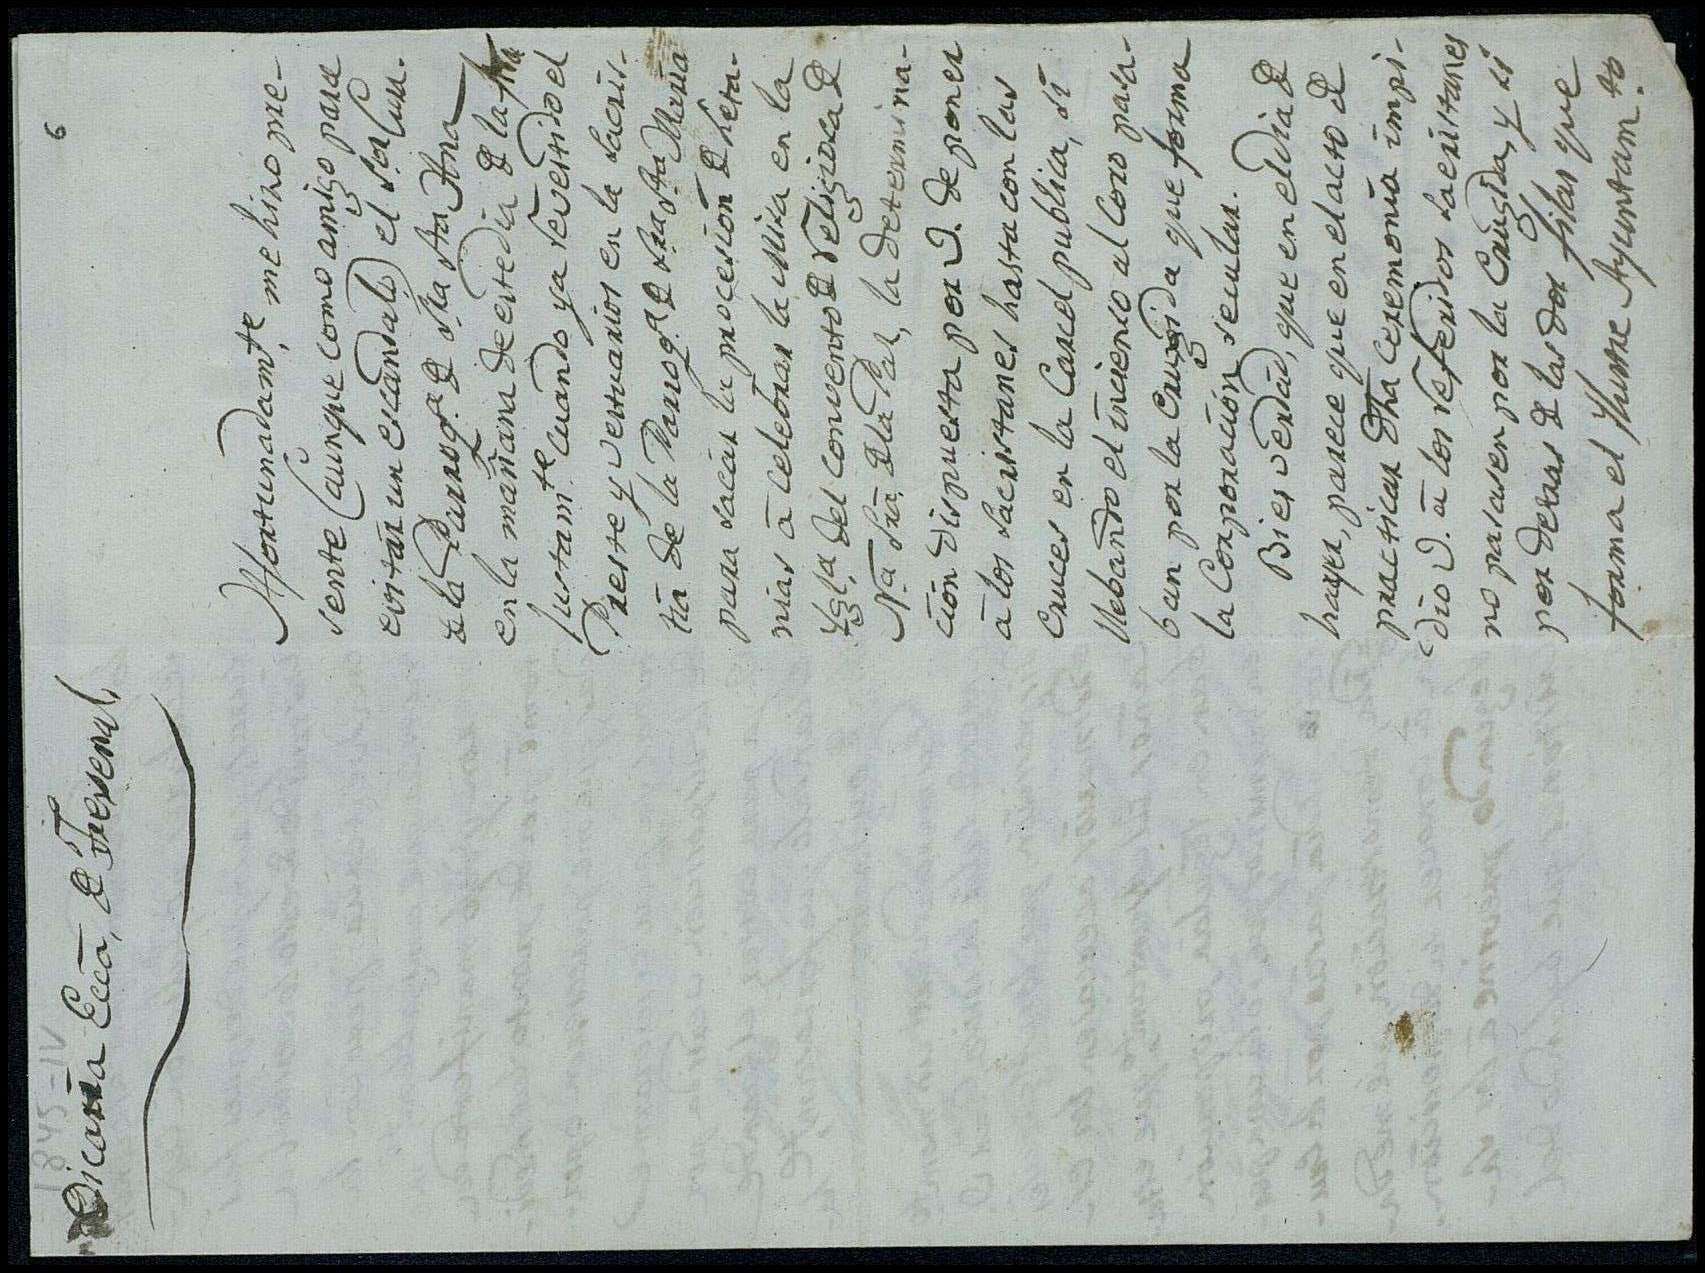 6
1842-IV
Vicaría Ecca, de Frexenal,
Afortunadamte, me hizo pre-
sente (aunque como amigo para
evitar un escandalo) el Sor Cura
de la Parroqa. de Sta Ana
en la mañana de este dia de la fha
Justamte cuando ya revestido el
Preste y vestuarios en la sacris-
tia de la Parroqa. de Sta Maria
para sacar la procesion de leta-
nias á celebrar la Misa en la
Ygla del convento de religiosas de
Na. Sra de la Paz, la determina-
cion dispuesta por V. de poner
á los sacristanes hasta con las
cruces en la Carcel publica, si
llebando el incienso al Coro pasa-
ban por la Crugida que forma
la Corporacion secular.
Bi es verdad, que en el dia de
hayer, parece que en el acto de
practicar dha ceremonia impi-
dio V. á los referidos sacristanes
no pasasen por la Crugida, y si
por detras de las dos filas que
forma el Yllustre Ayuntamto.